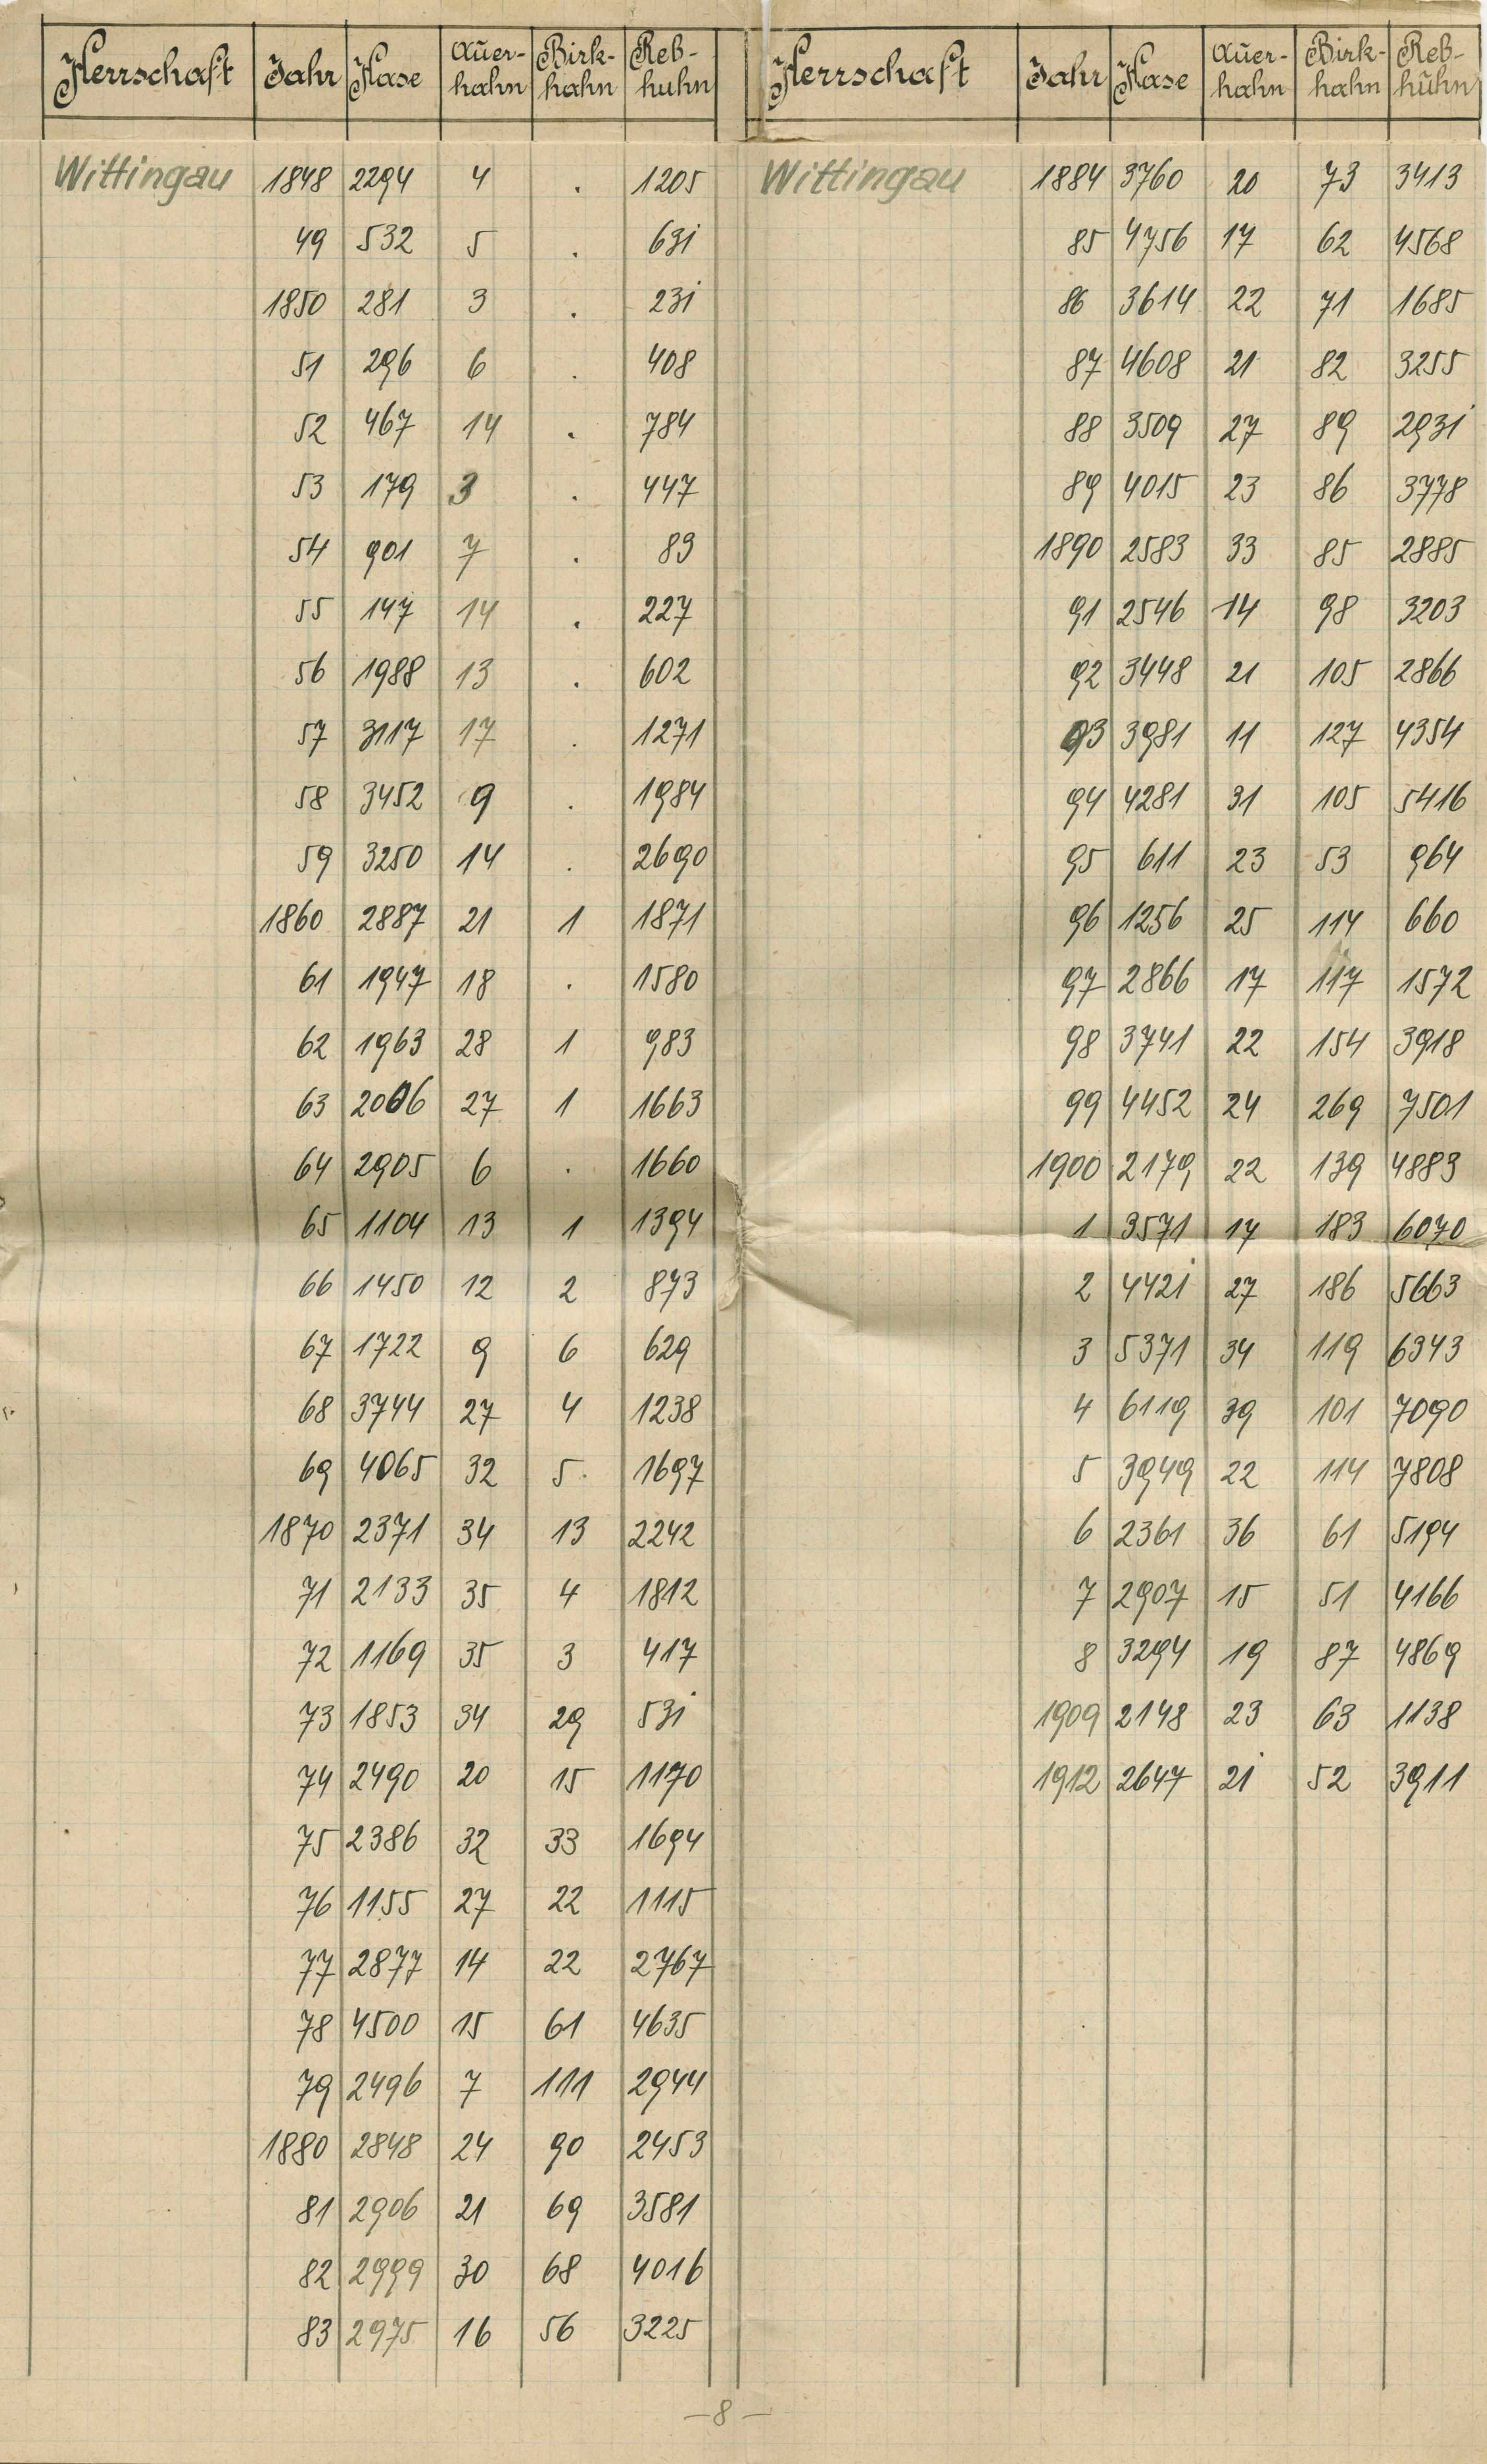 Herrschaft Jahr Hase Auer-hahn Birk-hahn Reb-huhn
Wittingau 1848 2294 4 . 1205
49 532 5 . 631
1850 281 3 . 231
51 296 6 . 408
52 467 14 . 784
53 179 3 . 447
54 901 7 . 83
55 147 14 . 227
56 1988 13 . 602
57 3117 17 . 1271
58 3452 9 . 1984
59 3250 14 . 2690
1860 2887 21 1 1871
61 1947 18 . 1580
62 1963 28 1 983
63 2006 27 1 1663
64 2905 6 . 1660
65 1104 13 1 1394
66 1450 12 2 873
67 1722 9 6 629
68 3744 27 4 1238
69 4065 32 5. 1697
1870 2371 34 13 2242
71 2133 35 4 1812
72 1169 35 3 417
73 1853 34 29 531
74 2490 20 15 1170
75 2386 32 33 1694
76 1155 27 22 1115
77 2877 14 22 2767
78 4500 15 61 4635
79 2496 7 111 2944
1880 2848 24 90 2453
81 2906 21 69 3581
82 2999 30 68 4016
83 2975 16 56 3225
Herrschaft Jahr Hase Auer-hahn Birk-hahn Reb-hühn
Wittingau 1884 3760 20 73 3413
85 4756 17 62 4568
86 3614 22 71 1685
87 4608 21 82 3255
88 3509 27 89 2931
89 4015 23 86 3778
1890 2583 33 85 2885
91 2546 14 98 3203
92 3448 21 105 2866
93 3981 11 127 4354
94 4281 31 105 5416
95 611 23 53 964
96 1256 25 114 660
97 2866 17 117 1572
98 3741 22 154 3918
99 4452 24 269 7501
1900 2179 22 139 4883
1 3571 17 183 6070
2 4421 27 186 5663
3 5371 34 119 6343
4 6119 39 101 7090
5 3949 22 114 7808
6 2361 36 61 5194
7 2907 15 51 4166
8 3294 19 87 4869
1909 2148 23 63 1138
1912 2647 21 52 3911
—8—